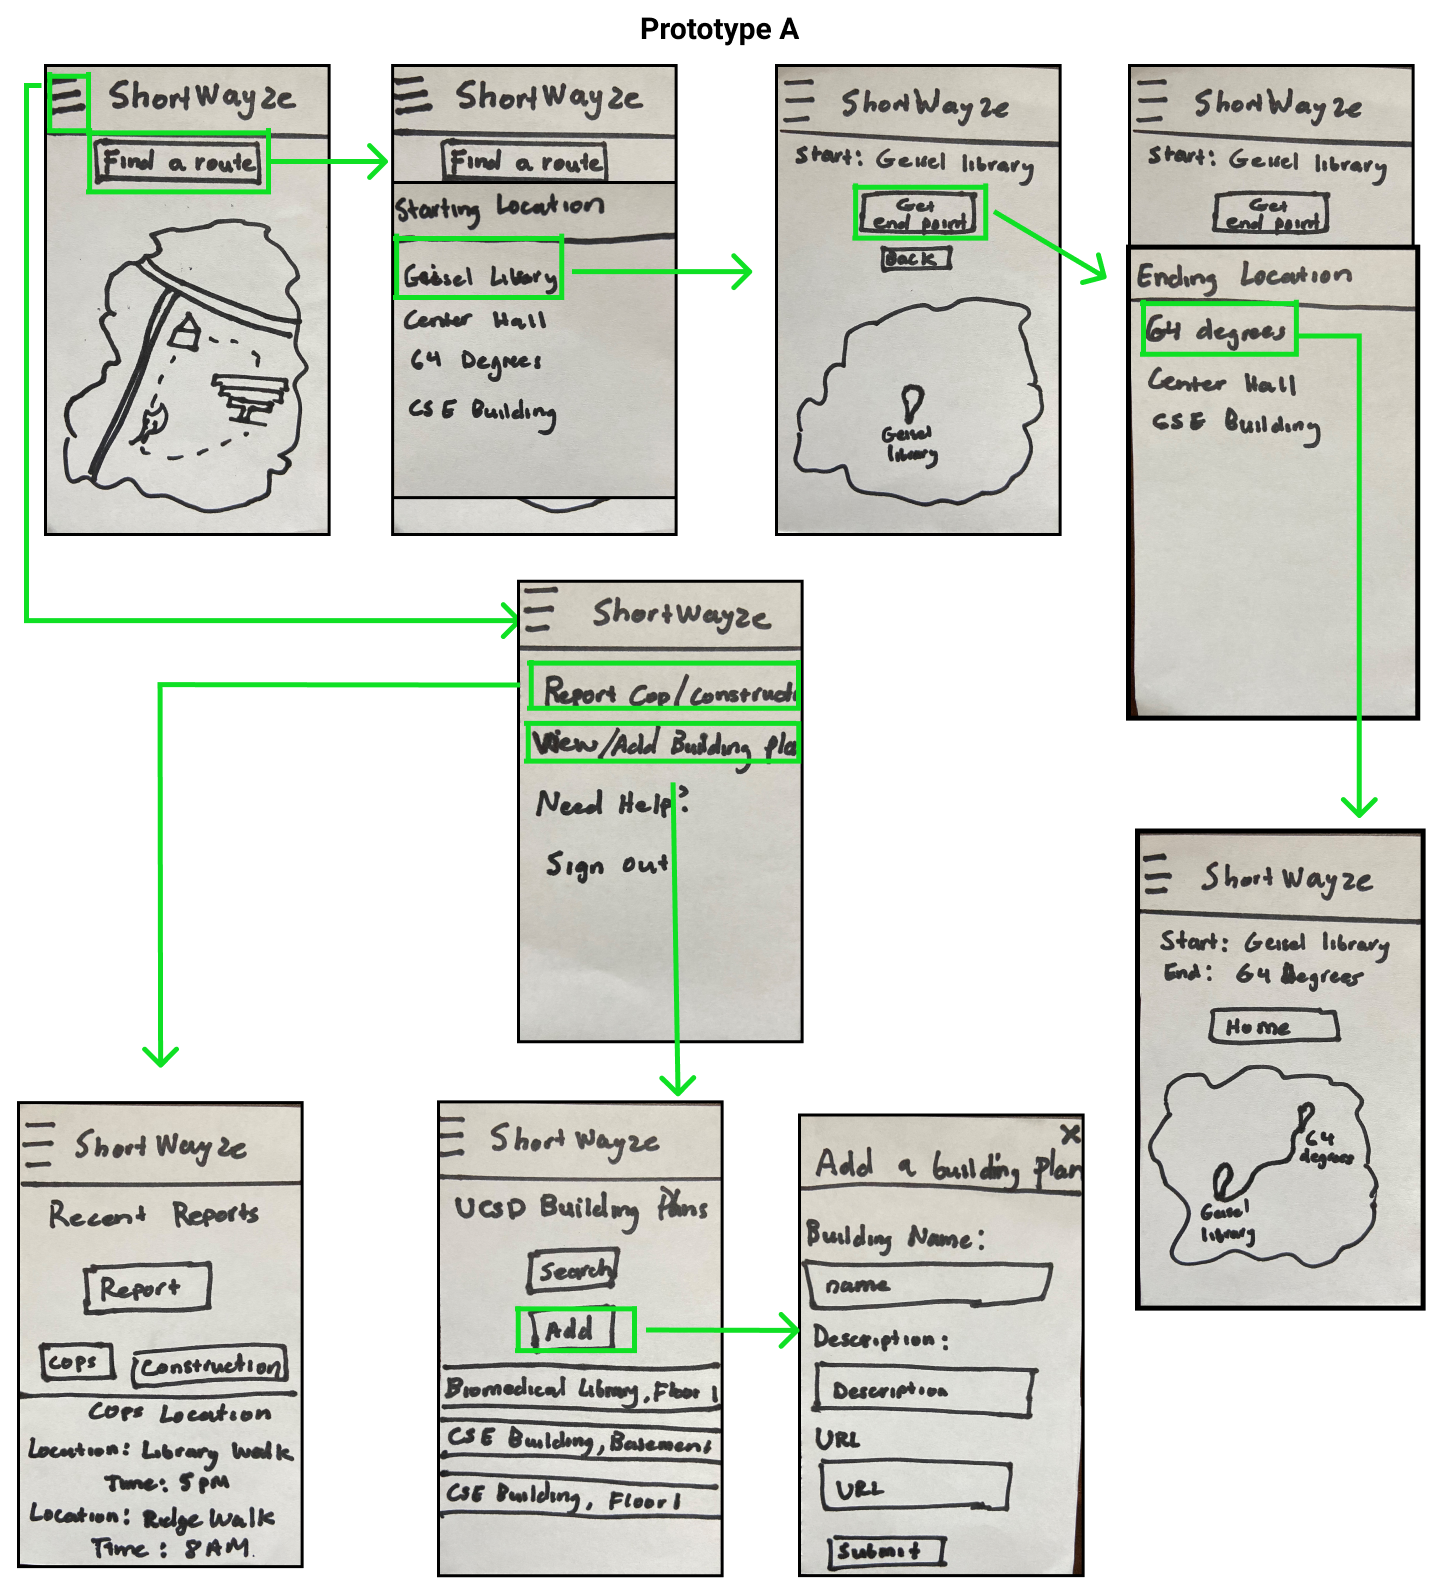 Prototype A
ShortWayze
Find a route
ShortWayze
Find a route
Starting Location
Geisel Library
Center Hall
64 Degrees
CSE Building
ShortWayze
Start: Geisel library
Get
end point
Back
Geisel
library
ShortWayze
Start: Geisel library
Get
end point
Ending Location
64 degrees
Center Hall
CSE Building
ShortWayze
Report Cop/Constructi
View/Add Building pla
Need Help?
Sign out
ShortWayze
Start: Geisel library
End: 64 Degrees
Home
64
degrees
Geisel
library
ShortWayze
Recent Reports
Report
Cops
Construction
Cops Location
Location: Library Walk
Time: 5pm
Location: Ridge Walk
Time: 8AM.
ShortWayze
UCSD Building Plans
Search
Add
Biomedical Library, Floor 1
CSE Building, Basement
CSE Building, Floor 1
X
Add a building plan
Building Name:
name
Description:
Description
URL
URL
Submit